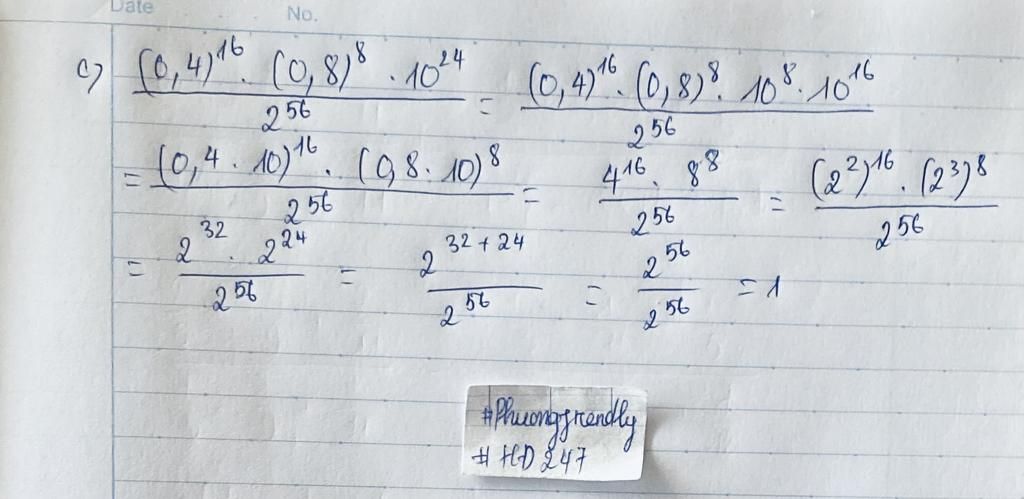 Date No.
c) \frac{(0,4)^{16} . (0,8)^8 . 10^{24}}{2^{56}} = \frac{(0,4)^{16} . (0,8)^8 . 10^8 . 10^{16}}{2^{56}}
= \frac{(0,4 . 10)^{16} . (0,8 . 10)^8}{2^{56}} = \frac{4^{16} . 8^8}{2^{56}} = \frac{(2^2)^{16} . (2^3)^8}{2^{56}}
= \frac{2^{32} . 2^{24}}{2^{56}} = \frac{2^{32+24}}{2^{56}} = \frac{2^{56}}{2^{56}} = 1
#Phuongfrendly
#HD247